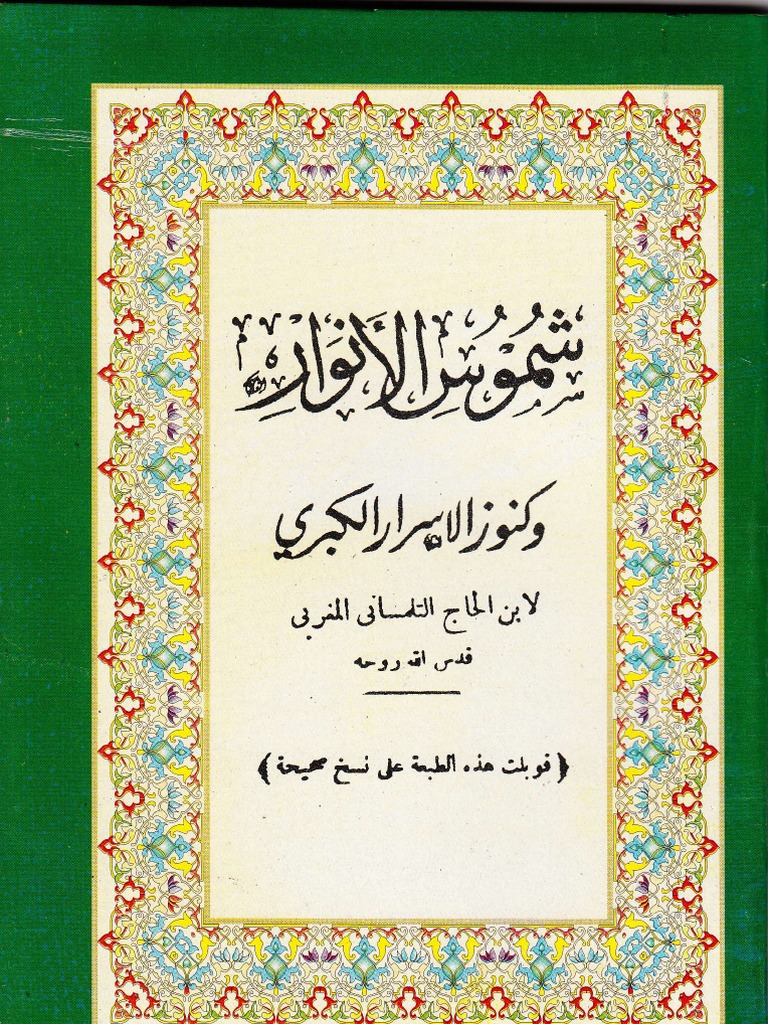 شُمُوُسِ الأَنوَارِ
وكنوز الاسرار الكبري
لابن الحاج التلمسانى المغربى
قدس الله روحه
﴿ قوبلت هذه الطبعة على نسخ صحيحة ﴾